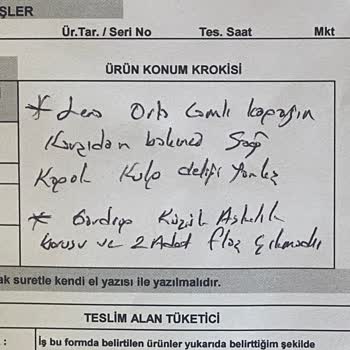 İŞLER
Ür.Tar. / Seri No Tes. Saat Mkt
ÜRÜN KONUM KROKİSİ
* Orta Camlı kapağın
Karşıdan bakınca Sağ
Kapak Kulp deliği Yanlış
* Gardrop Küçük Askılık
borusu ve 2 Adet flaş Çıkmadı
ak suretle kendi el yazısı ile yazılmalıdır.
TESLİM ALAN TÜKETİCİ
: İş bu formda belirtilen ürünler yukarıda belirttiğim şekilde